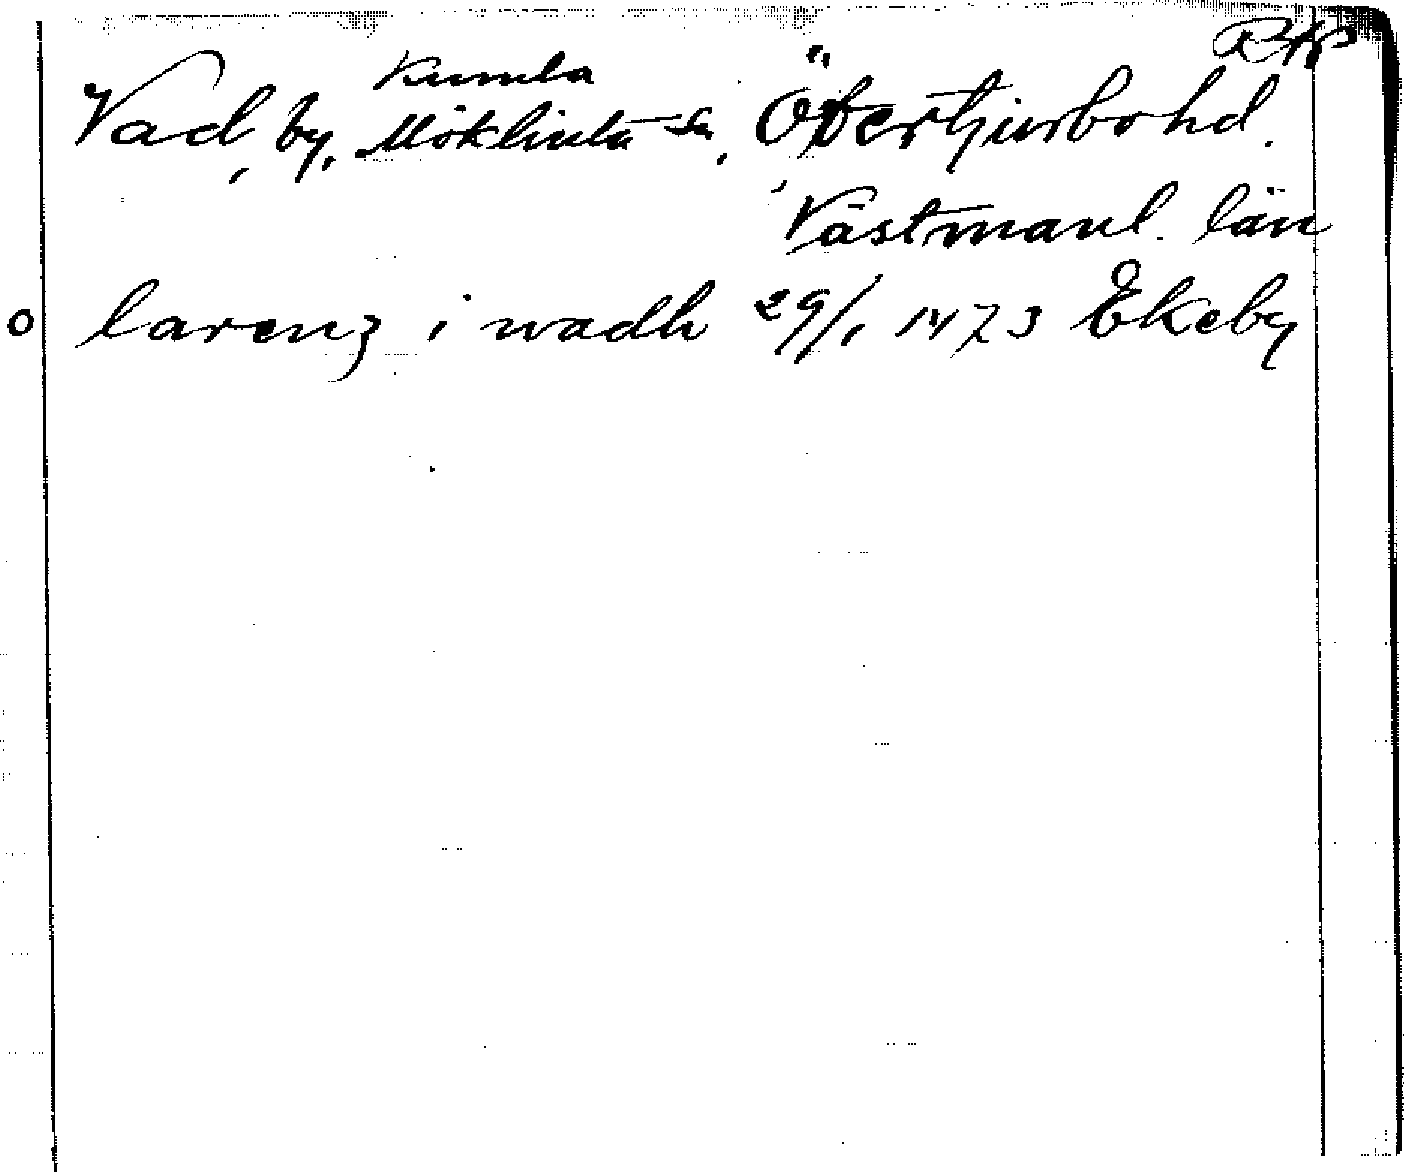 RAP
Kumla
Vad, by, Möklinta sn, Övertjurbo hd.
Västmanl. län
o larenz i wadh 29/1 1473 Ekeby